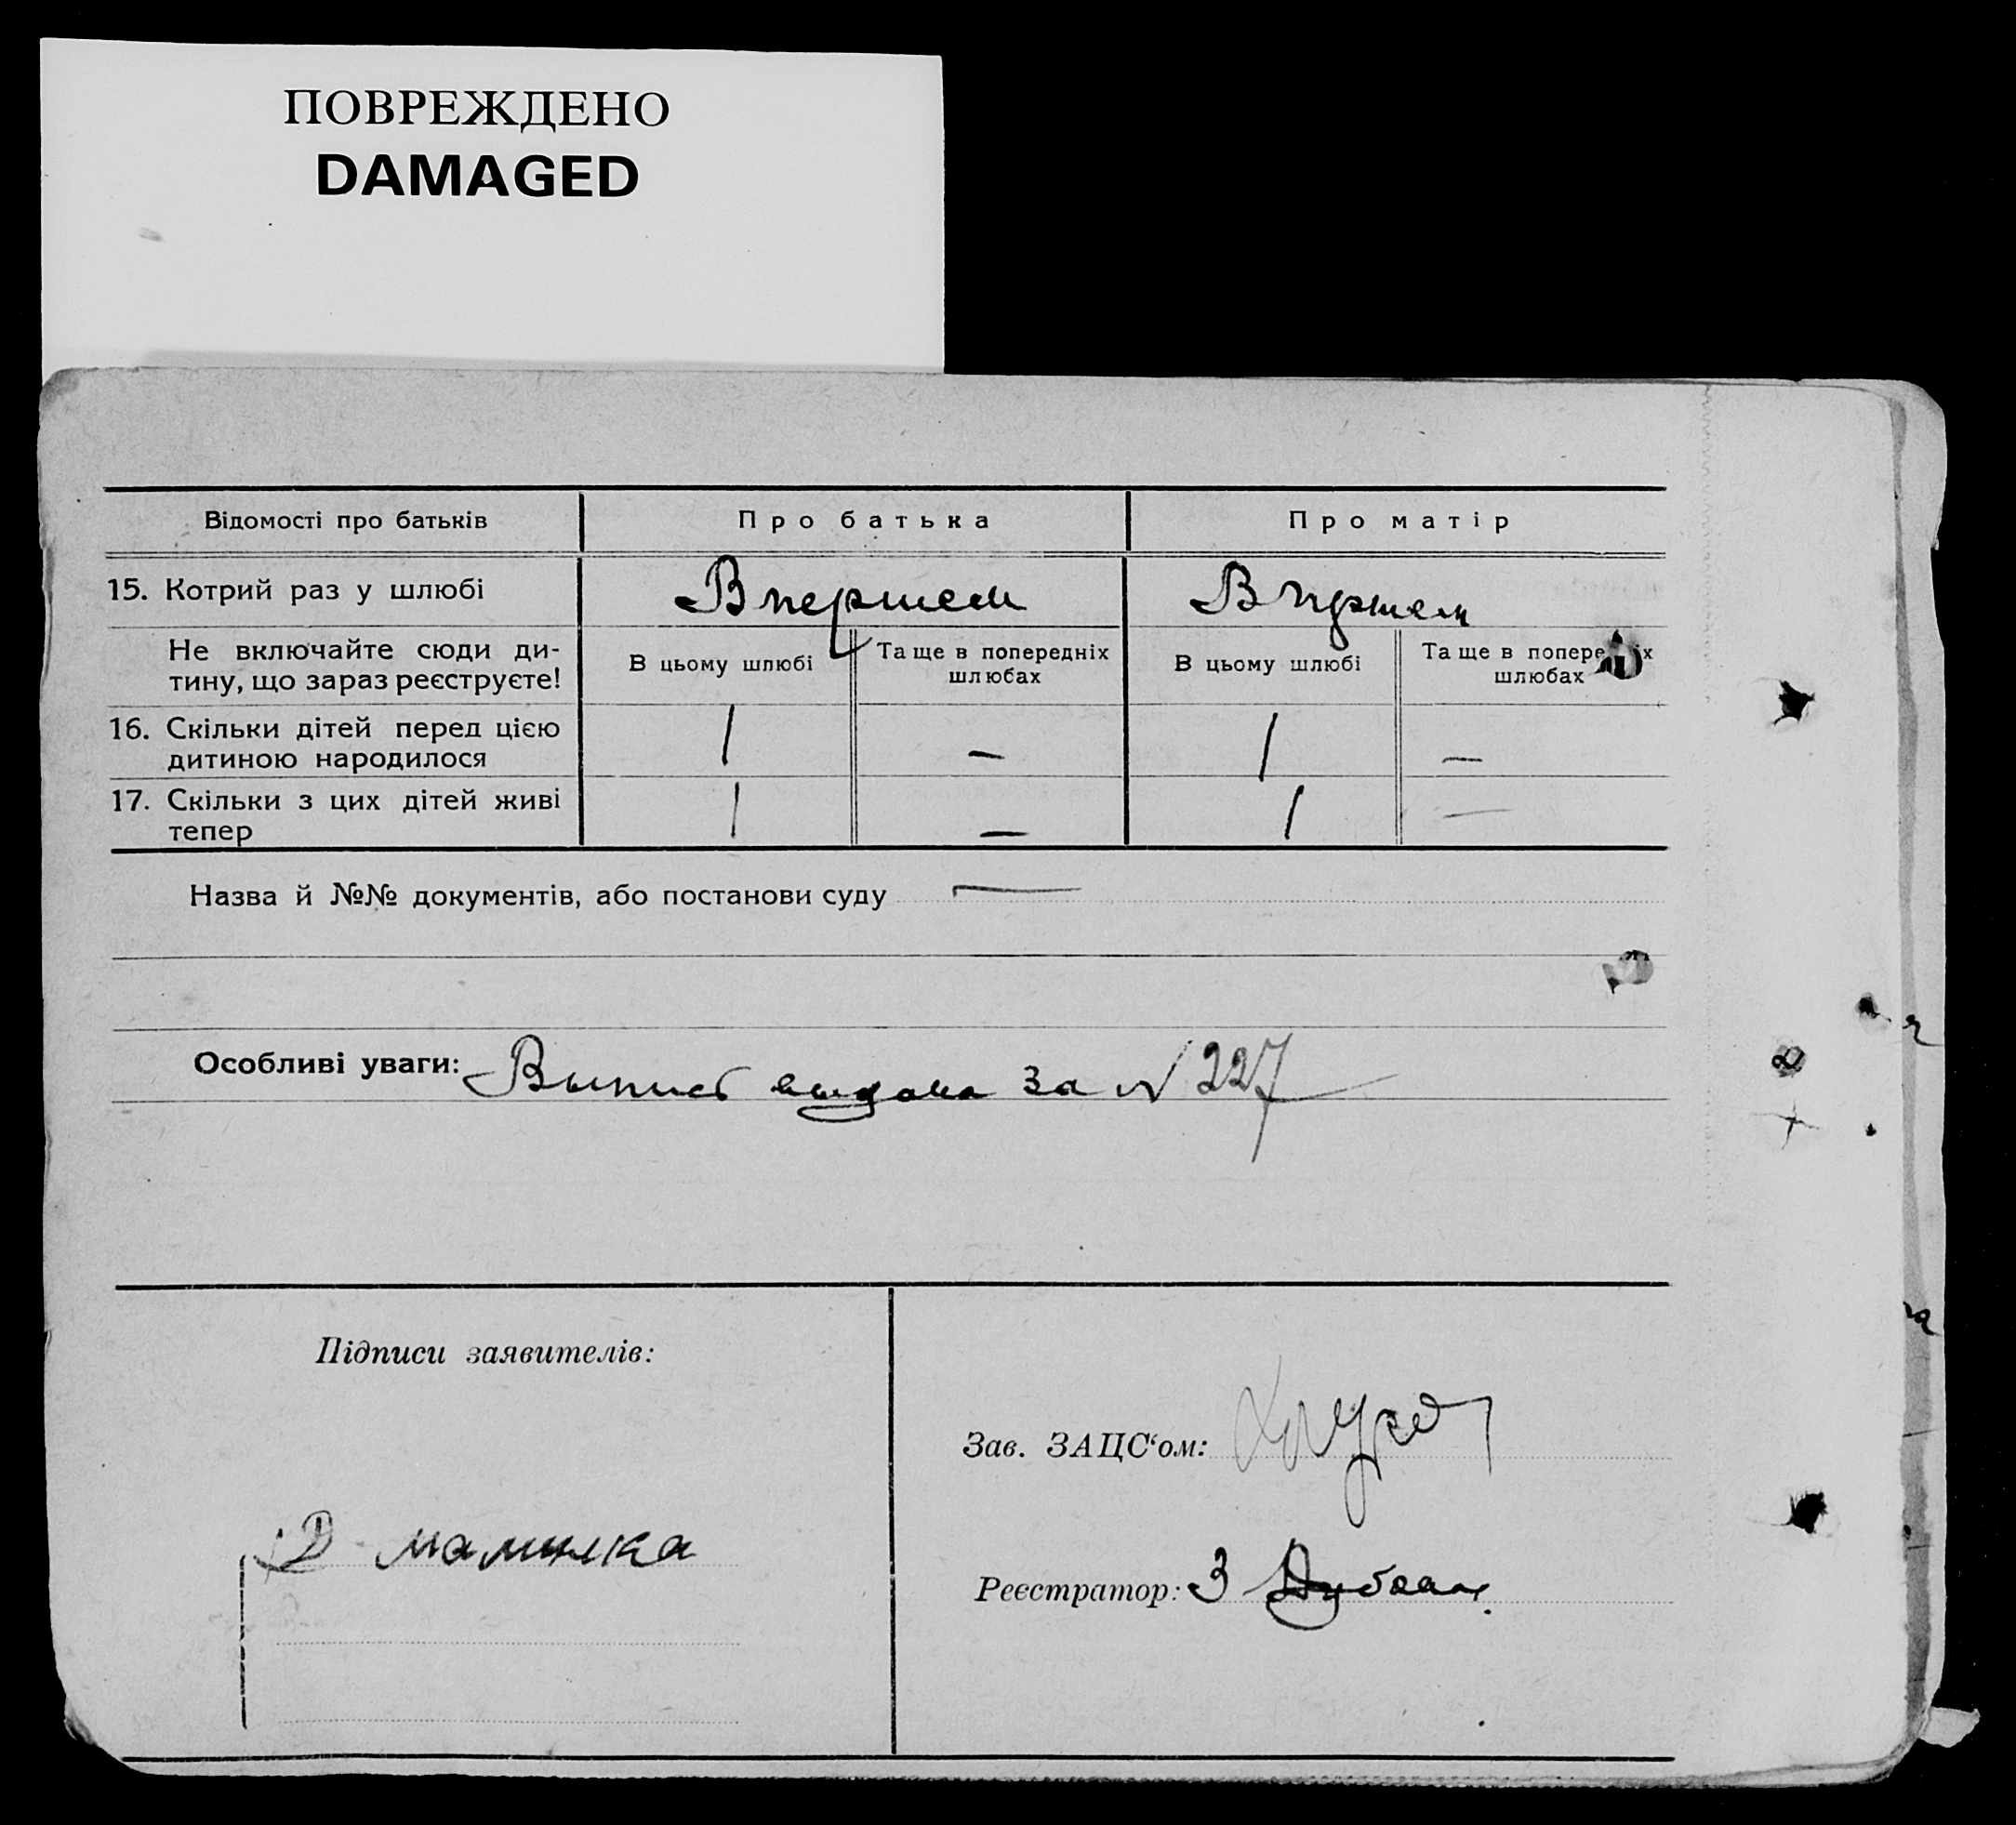 ПОВРЕЖДЕНО
DAMAGED
Відомості про батьків
Про батька
Про матір
15. Котрий раз у шлюбі
В першем
В першем
Не включайте сюди ди-
тину, що зараз реєструєте!
В цьому шлюбі
Та ще в попередніх
шлюбах
В цьому шлюбі
Та ще в попере іх
шлюбах
16. Скільки дітей перед цією
дитиною народилося
1
—
1
—
17. Скільки з цих дітей живі
тепер
1
—
1
—
Назва й №№ документів, або постанови суду —
Особливі уваги: Выпис выдана за N 227
Підписи заявителів:
Зав. ЗАЦС‘ом:
Реєстратор: З